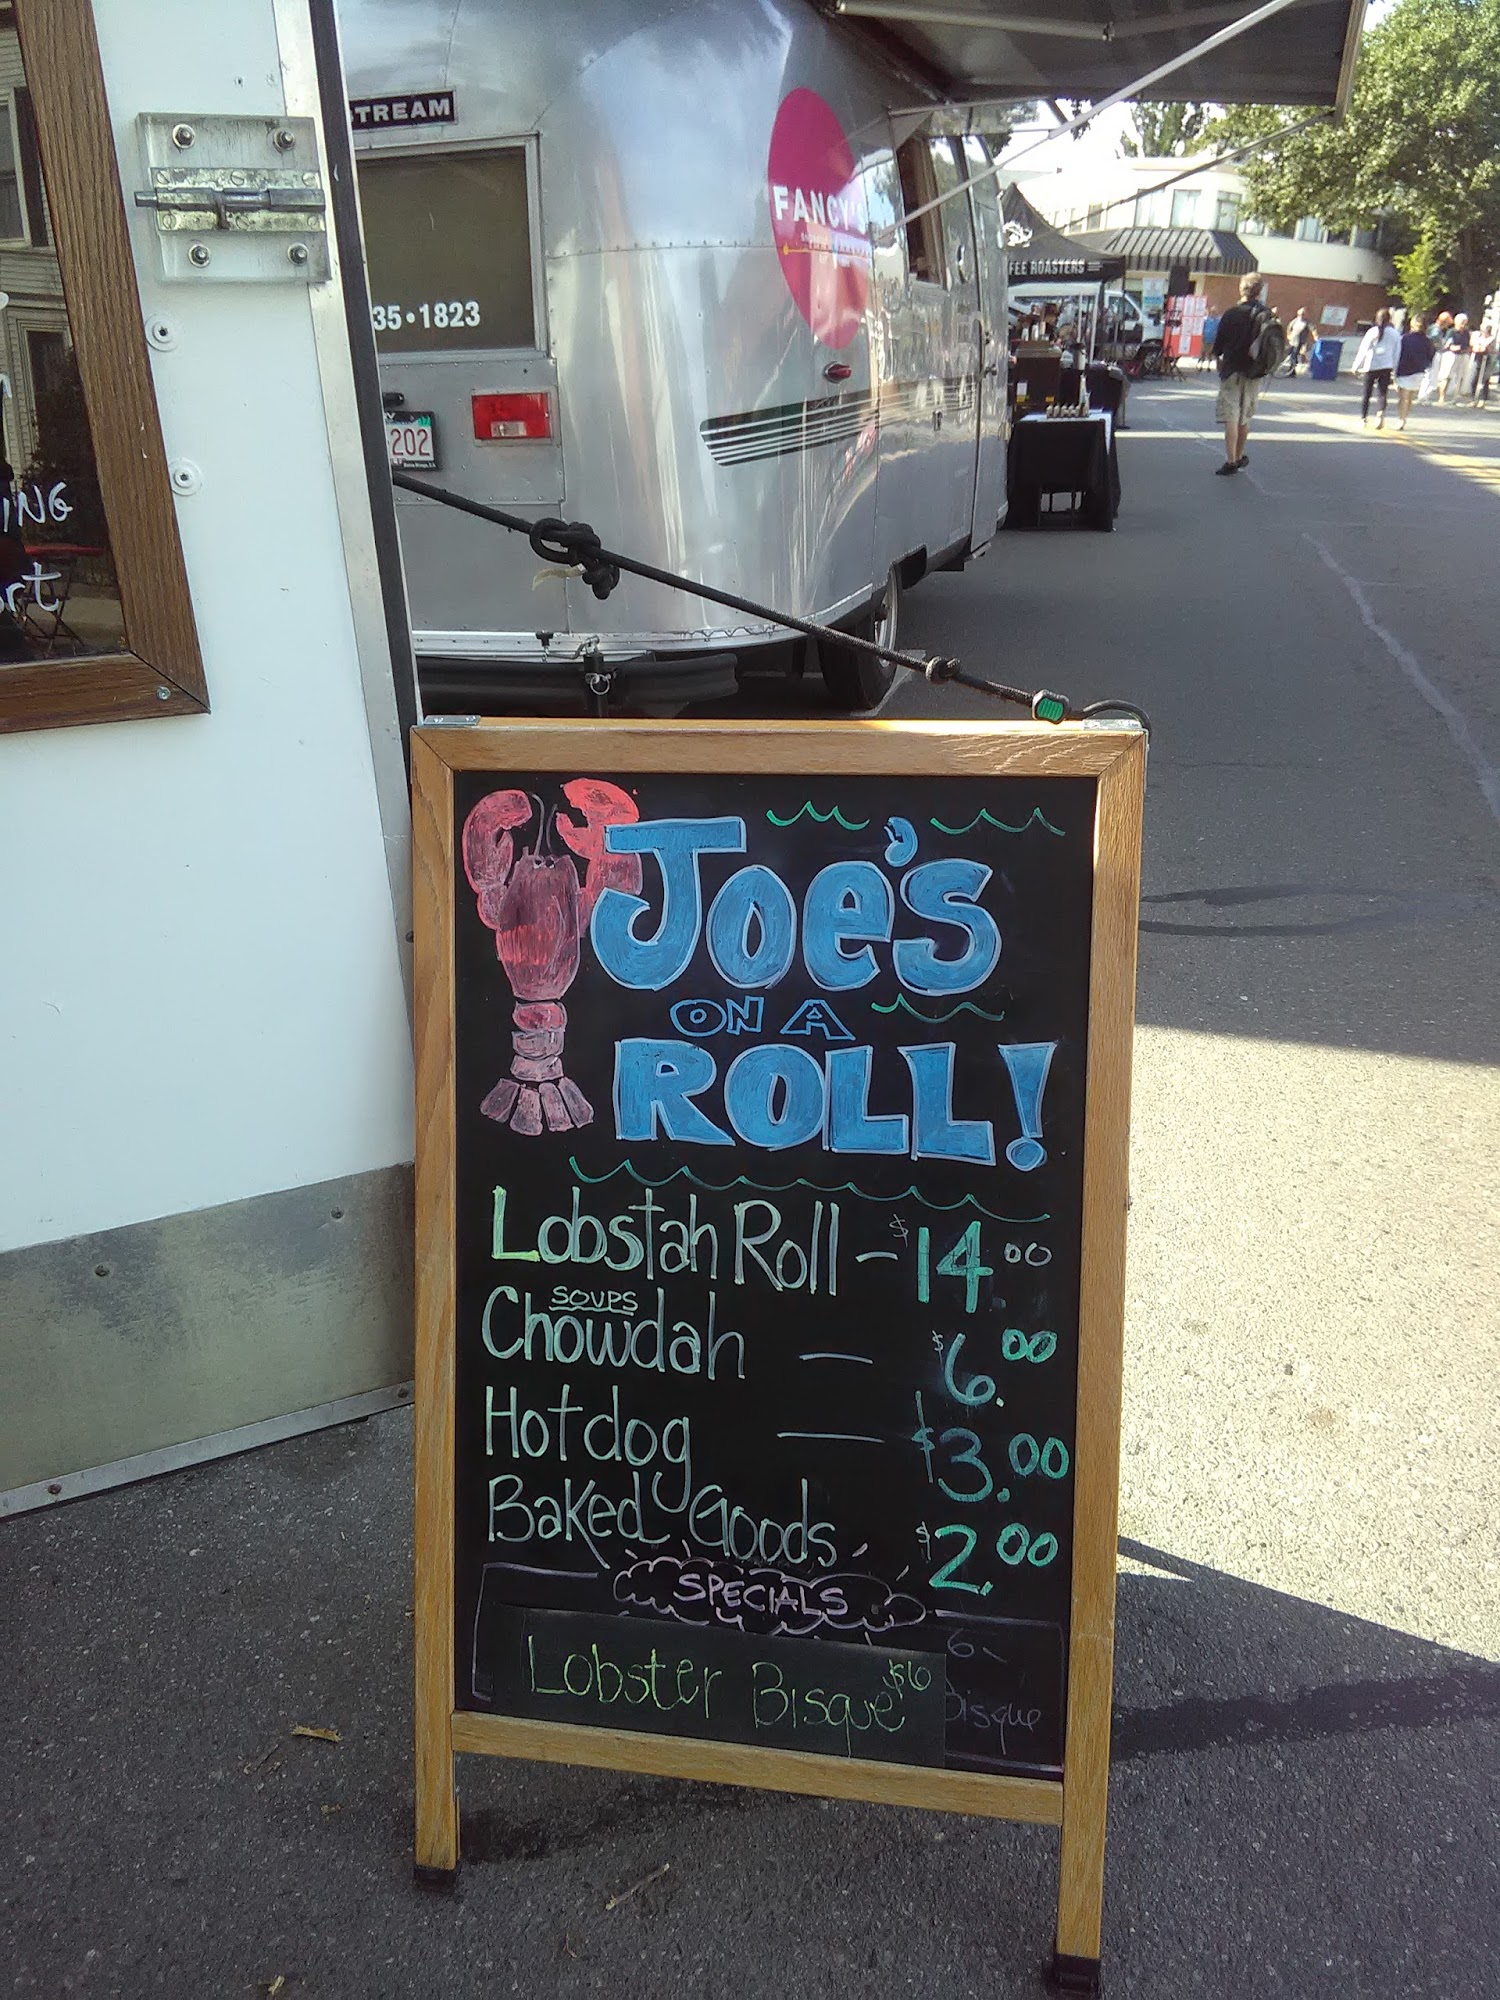 TREAM
FANCY'S
35•1823
202
FEE ROASTERS
ING
rt
Joe's
ON A
ROLL!
Lobstah Roll - $14.00
SOUPS
Chowdah — $6.00
Hotdog — $3.00
Baked Goods $2.00
SPECIALS
6-
Lobster Bisque $6
Bisque